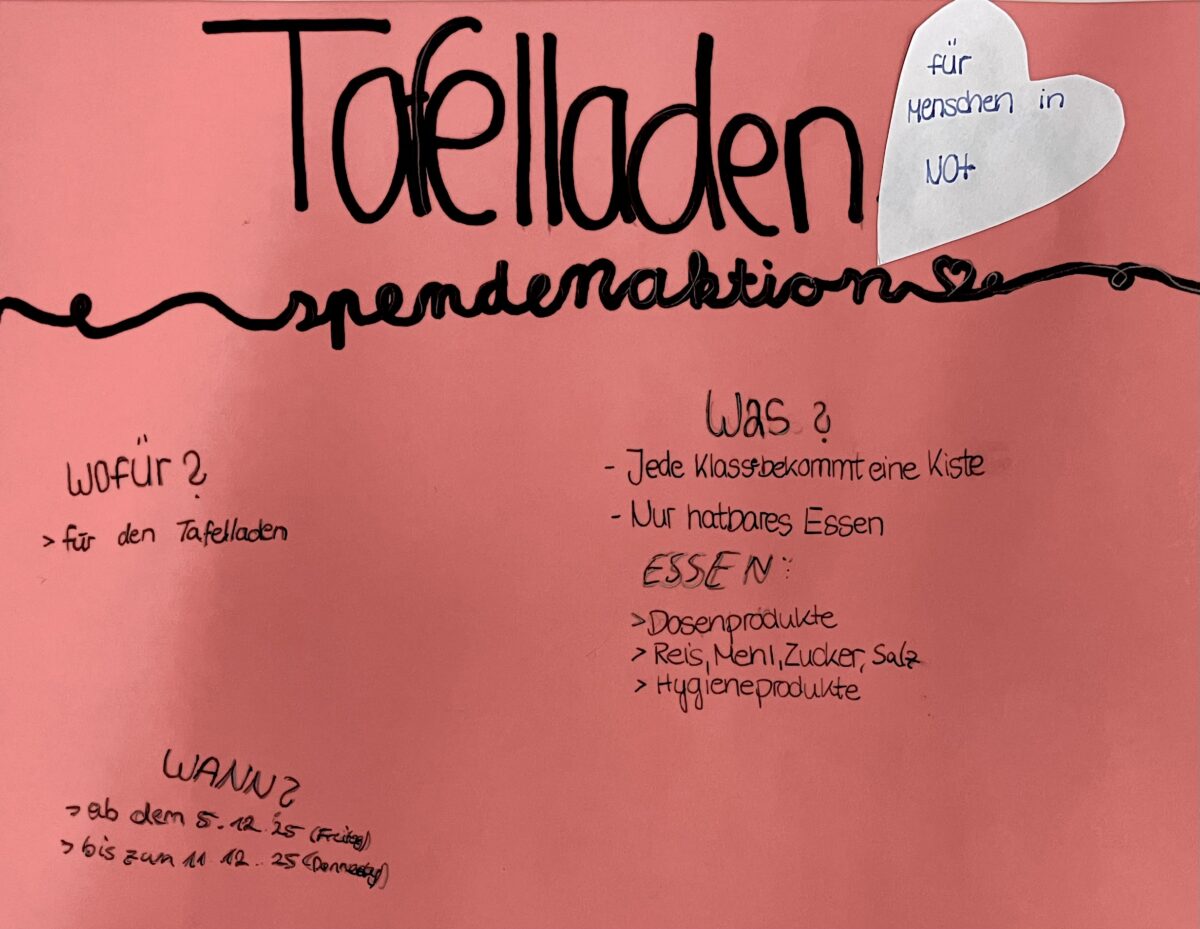 Tafelladen
für
Menschen in
Not
spendenaktion
Wofür?
> für den Tafelladen
Was?
- Jede Klasse bekommt eine Kiste
- Nur hatbares Essen
ESSEN:
> Dosenprodukte
> Reis, Mehl, Zucker, Salz
> Hygieneprodukte
WANN?
> ab dem 5.12.25 (Freitag)
> bis zum 11.12.25 (Donnerstag)